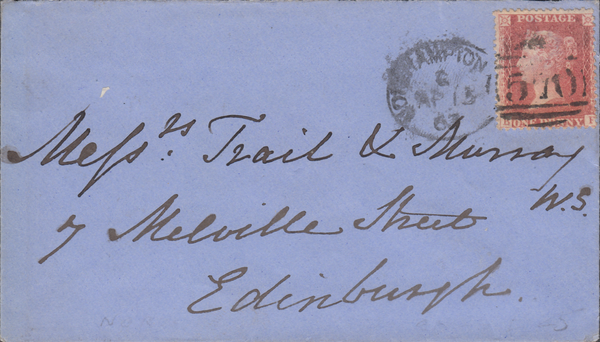 POSTAGE
570
ONE PENNY
HAMPTON
AP 15
Messrs Trail & Murray
W.S.
7 Melville Street
Edinburgh.